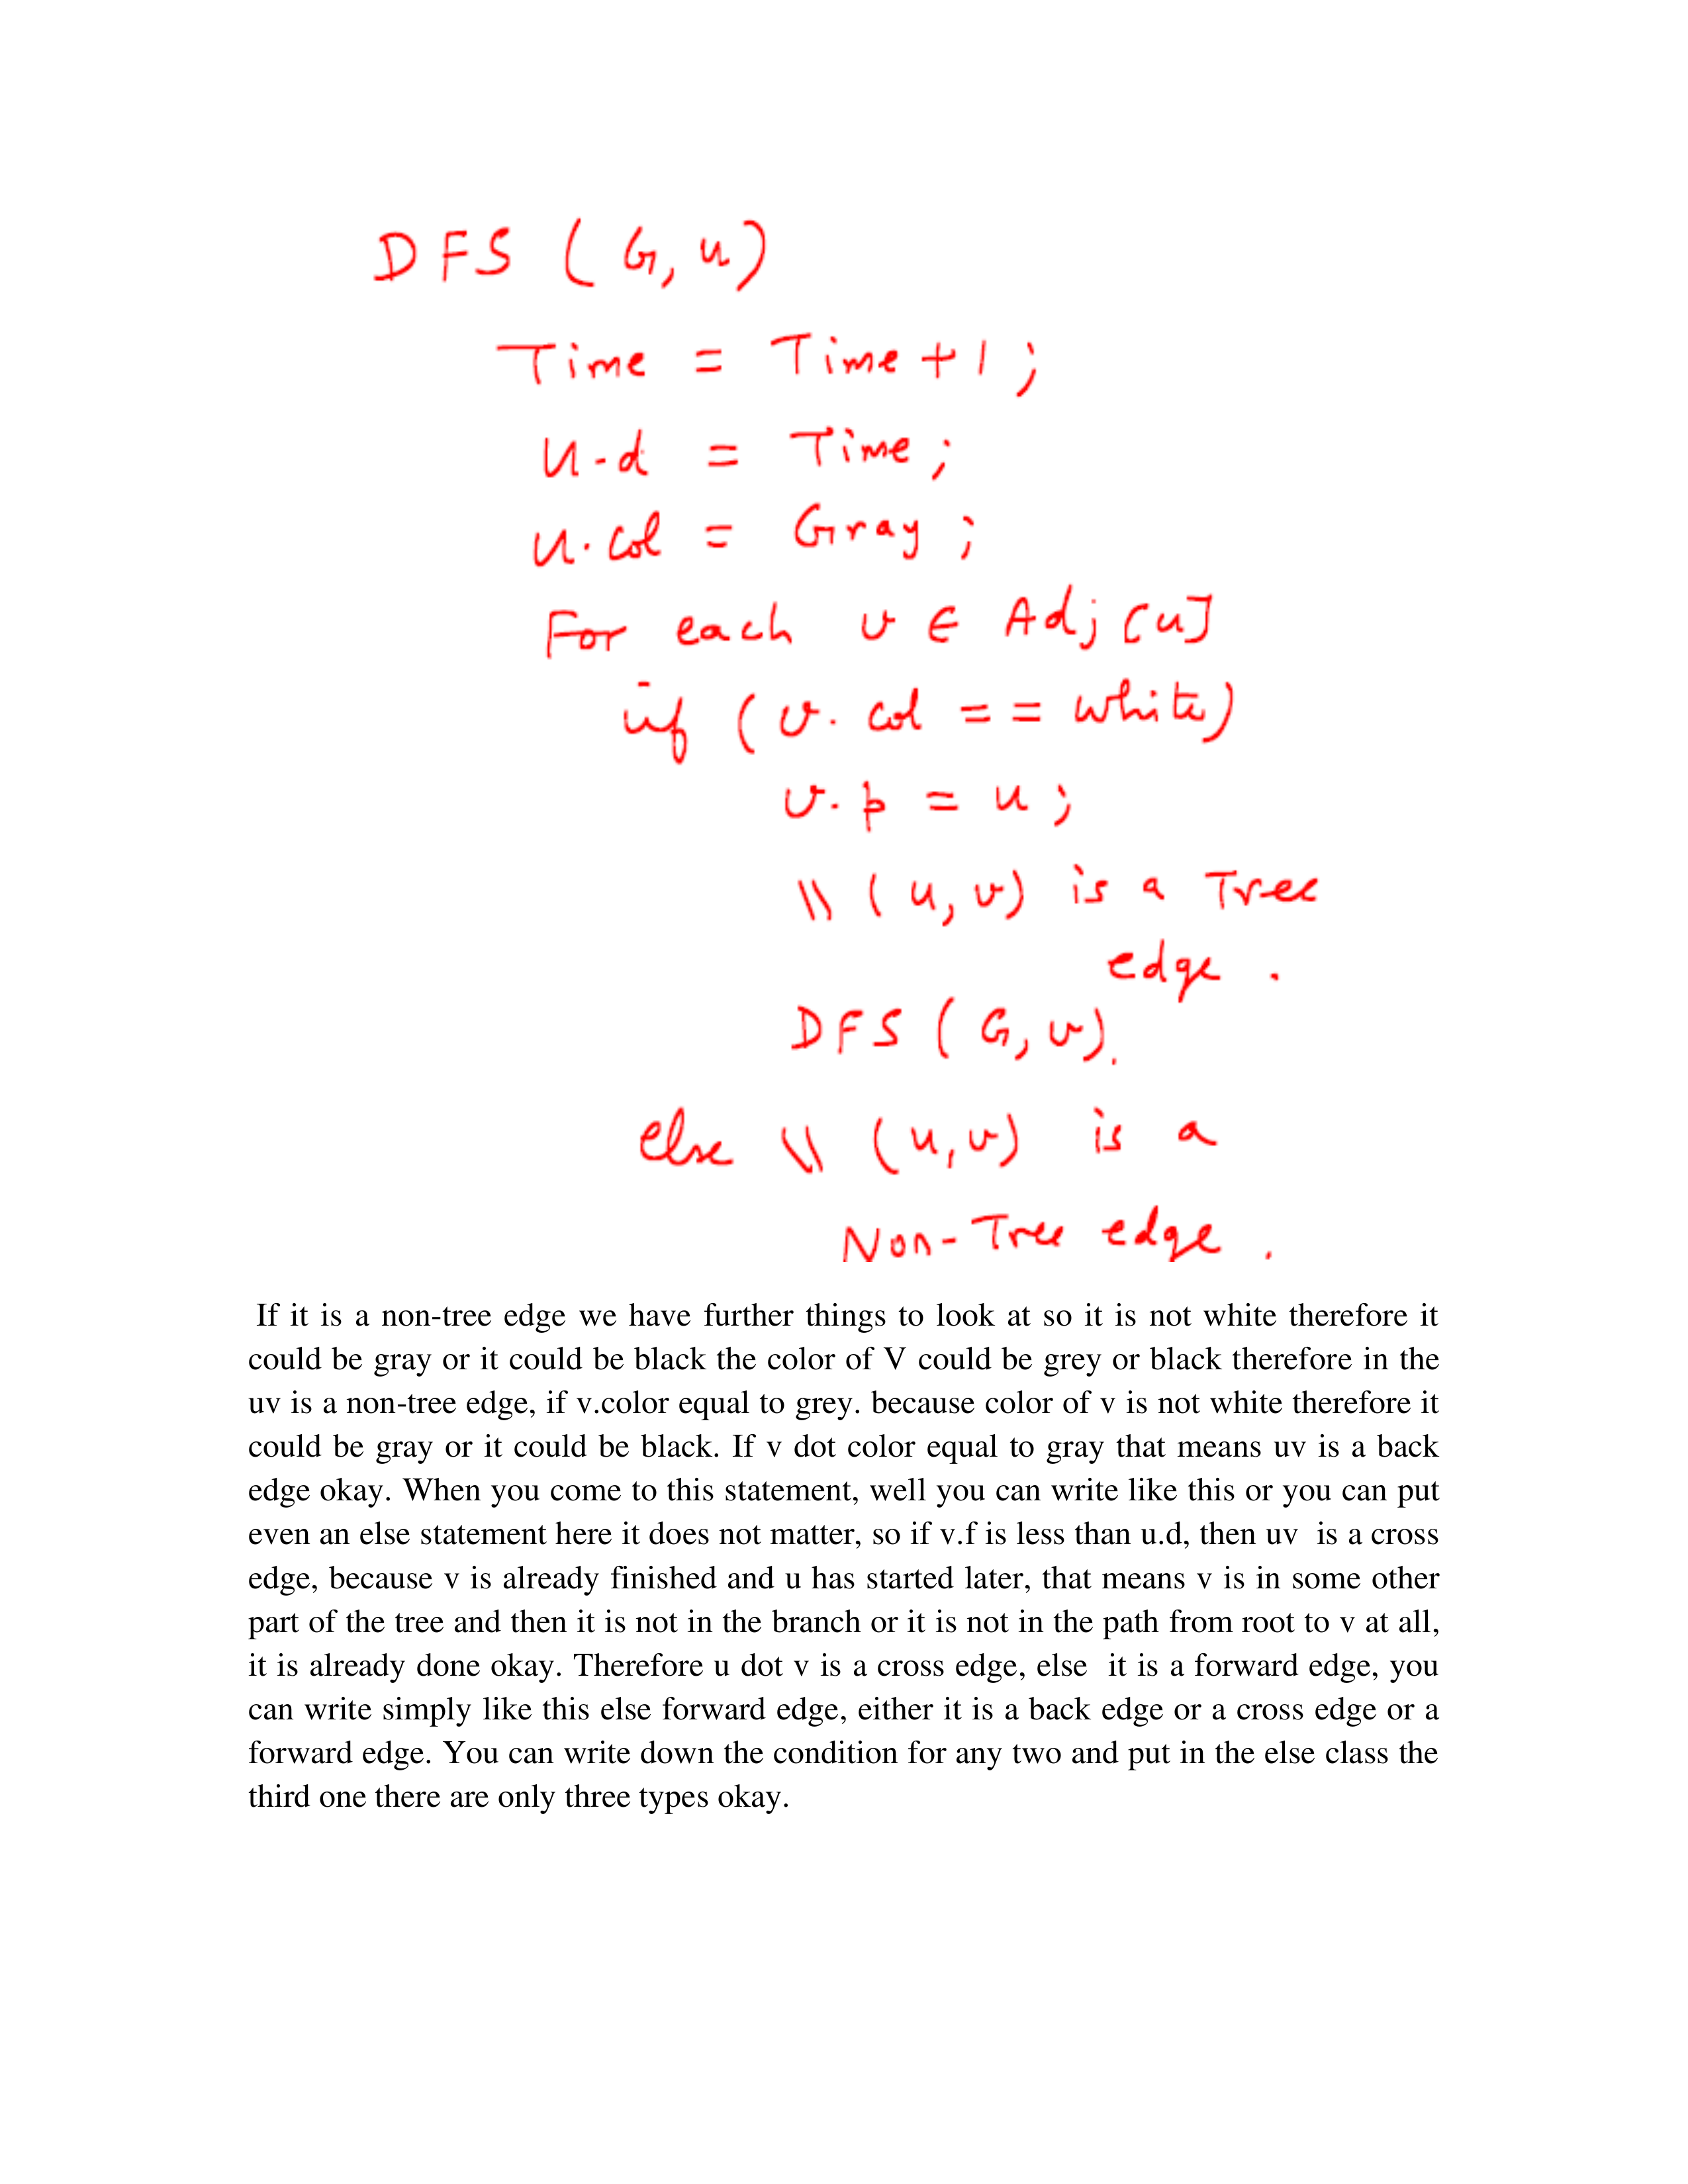 DFS (G, u)
Time = Time + 1 ;
u.d = Time ;
u.col = Gray ;
For each v ∈ Adj [u]
if (v. col == white)
v.p = u ;
\\ (u, v) is a Tree
edge .
DFS (G, v).
else \\ (u, v) is a
Non-Tree edge .
If it is a non-tree edge we have further things to look at so it is not white therefore it
could be gray or it could be black the color of V could be grey or black therefore in the
uv is a non-tree edge, if v.color equal to grey. because color of v is not white therefore it
could be gray or it could be black. If v dot color equal to gray that means uv is a back
edge okay. When you come to this statement, well you can write like this or you can put
even an else statement here it does not matter, so if v.f is less than u.d, then uv is a cross
edge, because v is already finished and u has started later, that means v is in some other
part of the tree and then it is not in the branch or it is not in the path from root to v at all,
it is already done okay. Therefore u dot v is a cross edge, else it is a forward edge, you
can write simply like this else forward edge, either it is a back edge or a cross edge or a
forward edge. You can write down the condition for any two and put in the else class the
third one there are only three types okay.